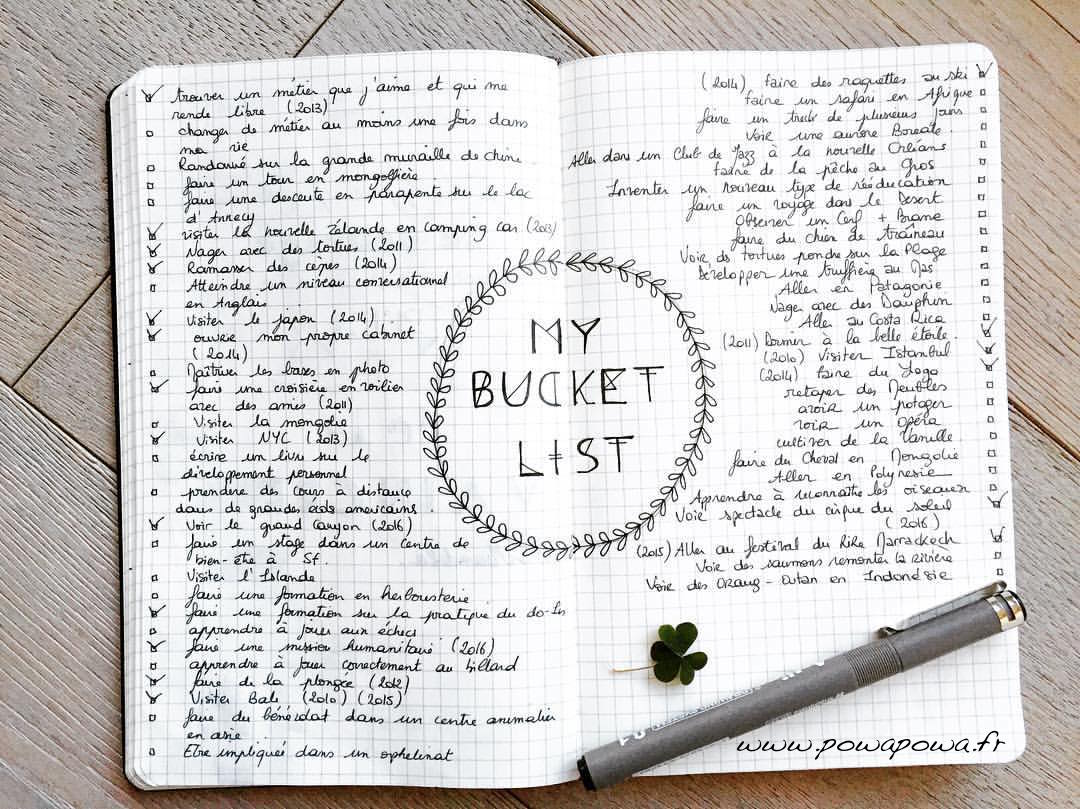 trouver un métier que j'aime et qui me
rende libre (2013)
changer de métier au moins une fois dans
ma vie
Randonné sur la grande muraille de chine.
faire un tour en mongolfière
faire une descente en parapente sur le lac
d'Annecy
visiter la nouvelle Zélande en camping car (2013)
Nager avec des tortues (2011)
Ramasser des cèpes (2014)
Atteindre un niveau conversationnel
en Anglais.
Visiter le japon (2014)
ouvrir mon propre cabinet
(2014)
Maîtriser les bases en photo
faire une croisière en voilier
avec des amies (2011)
Visiter la mongolie
Visiter NYC (2013)
écrire un livre sur le
développement personnel
prendre des cours à distance
dans de grandes américains.
Voir le grand Canyon (2016)
faire un stage dans un centre de
bien-être à Sf.
Visiter l'Islande
faire une formation en herboristerie
faire une formation sur la pratique du do-In
apprendre à jouer aux échecs
faire une mission humanitaire (2016)
apprendre à jouer correctement au billard
faire de la plongée (2012)
Visiter Bali (2010) (2015)
faire du bénévolat dans un centre animalier
en asie.
Etre impliquée dans un orphelinat
MY
BUCKET
LIST
(2014) faire des raquettes au ski
faire un safari en Afrique
faire un treck de plusieurs jours
Voir une aurore Boréale.
Aller dans un Club de Jazz à la nouvelle Orléans
faire de la pêche au Gros
Inventer un nouveau type de rééducation
faire un voyage dans le Desert
Observer un Cerf + Brame
faire du chien de traîneau
Voir des tortues pondre sur la Plage
Développer une truffière au Mas
Aller en Patagonie
Nager avec des Dauphin
Aller au Costa Rica
(2011) Dormir à la belle étoile.
(2010) Visiter Istanbul
(2014) faire du Yoga
retaper des Meubles
avoir un potager
voir un opéra
cultiver de la Vanille
faire du Cheval en Mongolie
Aller en Polynesie
Apprendre à reconnaître les oiseaux
Voir spectacle du cirque du soleil
(2016)
(2015) Aller au festival du Rire Marrackech
Voir des saumons remonter la rivière
Voir des Orang-Outan en Indonésie
www.powapowa.fr